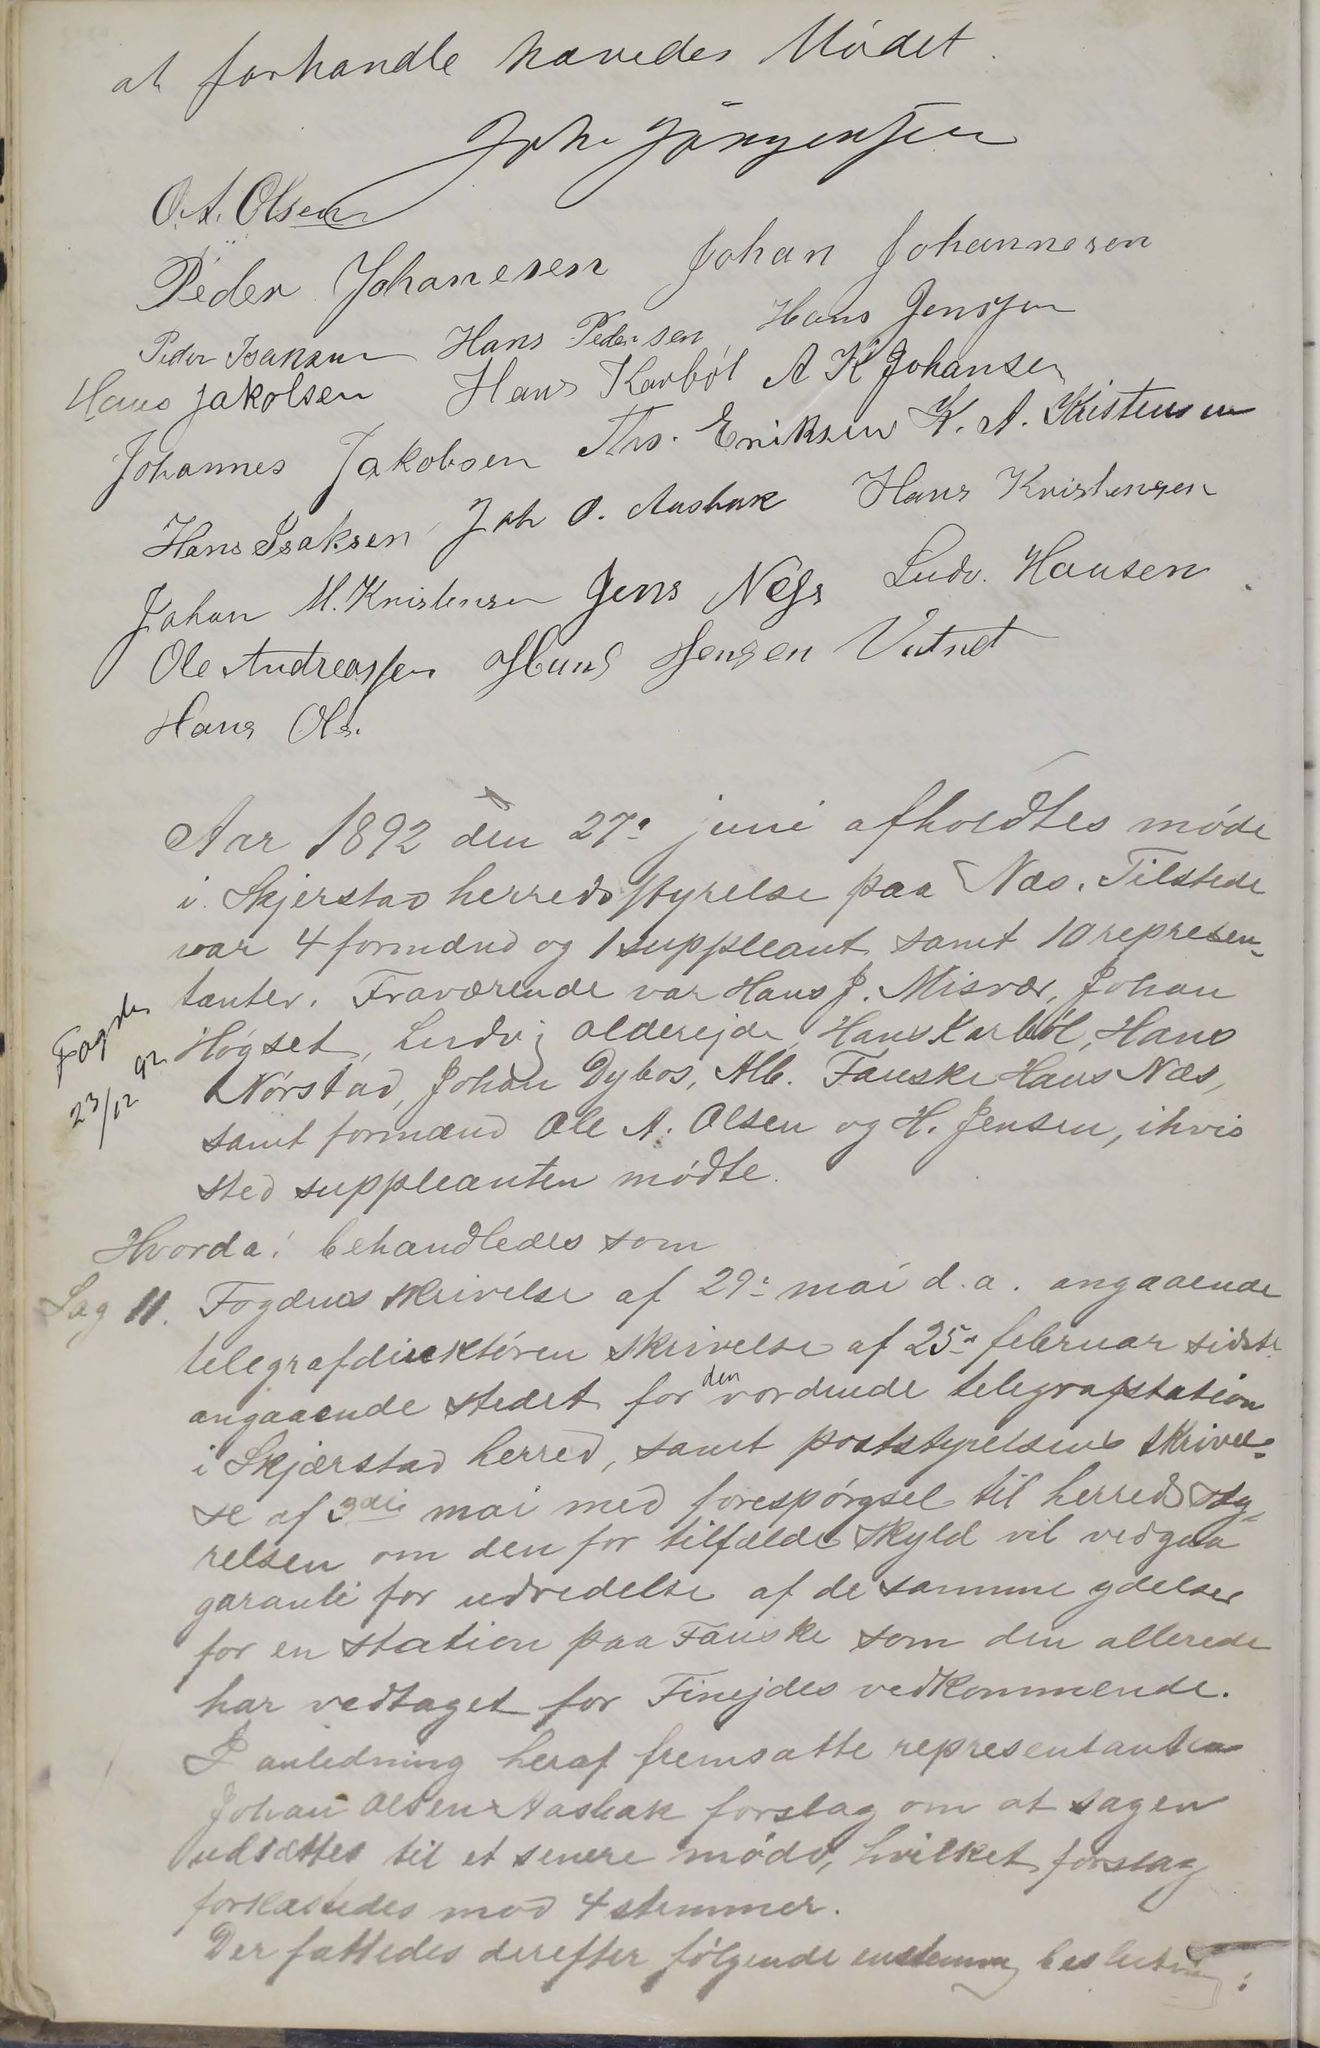 at forhandle hævedes Mødet.
Joh. Jörgensen
O. A. Olsen
Peder Johanesen Johan Johannesen
Peder Isaksen Hans Pedersen Hans Jenssen
Hans Jakobsen Hans Karbøl A K Johansen
Johannes Jakobsen Ths. Eriksen K. A. Kristensen
Hans Isaksen Joh O. Aasbak Hans Kristensen
Johan M. Kristensen Jens Næss Ludv. Hansen
Ole Andreassen Hans Jensen Vatnet
Hans Ols.
Aar 1892 den 27de juni afholdtes møde
i Skjerstad herredsstyrelse paa Næs. Tilstede
var 4 formænd og 1 suppleant samt 10 represen-
tanter. Fraværende var Hans J. Misvær, Johan
Høgset, Ludvig Alderejde, Hans Karbøl, Hans
Nørstad, Johan Dybos, Alb. Fauske Hans Næs,
samt formænd Ole A. Olsen og H. Jensen, i hvis
sted suppleanten mødte.
Fogden
23/12 92
Hvorda: behandledes som
Sag 11. Fogdens skrivelse af 29de mai d.a. angaaende
telegrafdirektøren skrivelse af 25de februar sidste
angaaende stedet for den vordende telegrafstation
i Skjærstad herred, samt poststyrelsens skrivel-
se af 3die mai med forespørgsel til herredssty-
relsen om den for tilfælde skyld vil vedgaa
garanti for udredelse af de samme ydelser
for en station paa Fauske som den allerede
har vedtaget for Finejdes vedkommende.
I anledning heraf fremsatte representanten
Johan Olsen Aasbak forslag om at sagen
udsættes til et senere møde, hvilket forslag
forkastedes mod 4 stemmer.
Der fattedes derefter følgende enstemmig beslutning: